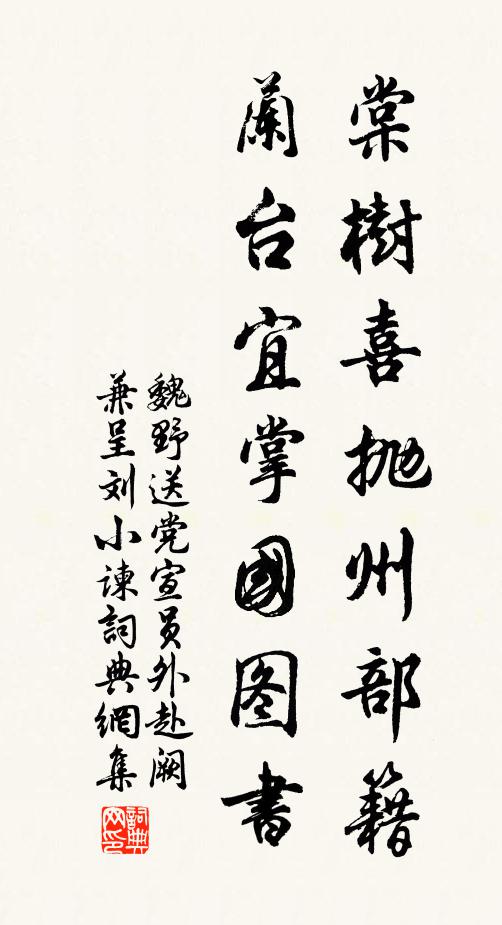 棠樹喜抛州部籍
蘭台宜掌國图書
魏野送党宣員外赴阙
兼呈刘小諫詞典網集
詞典
网印